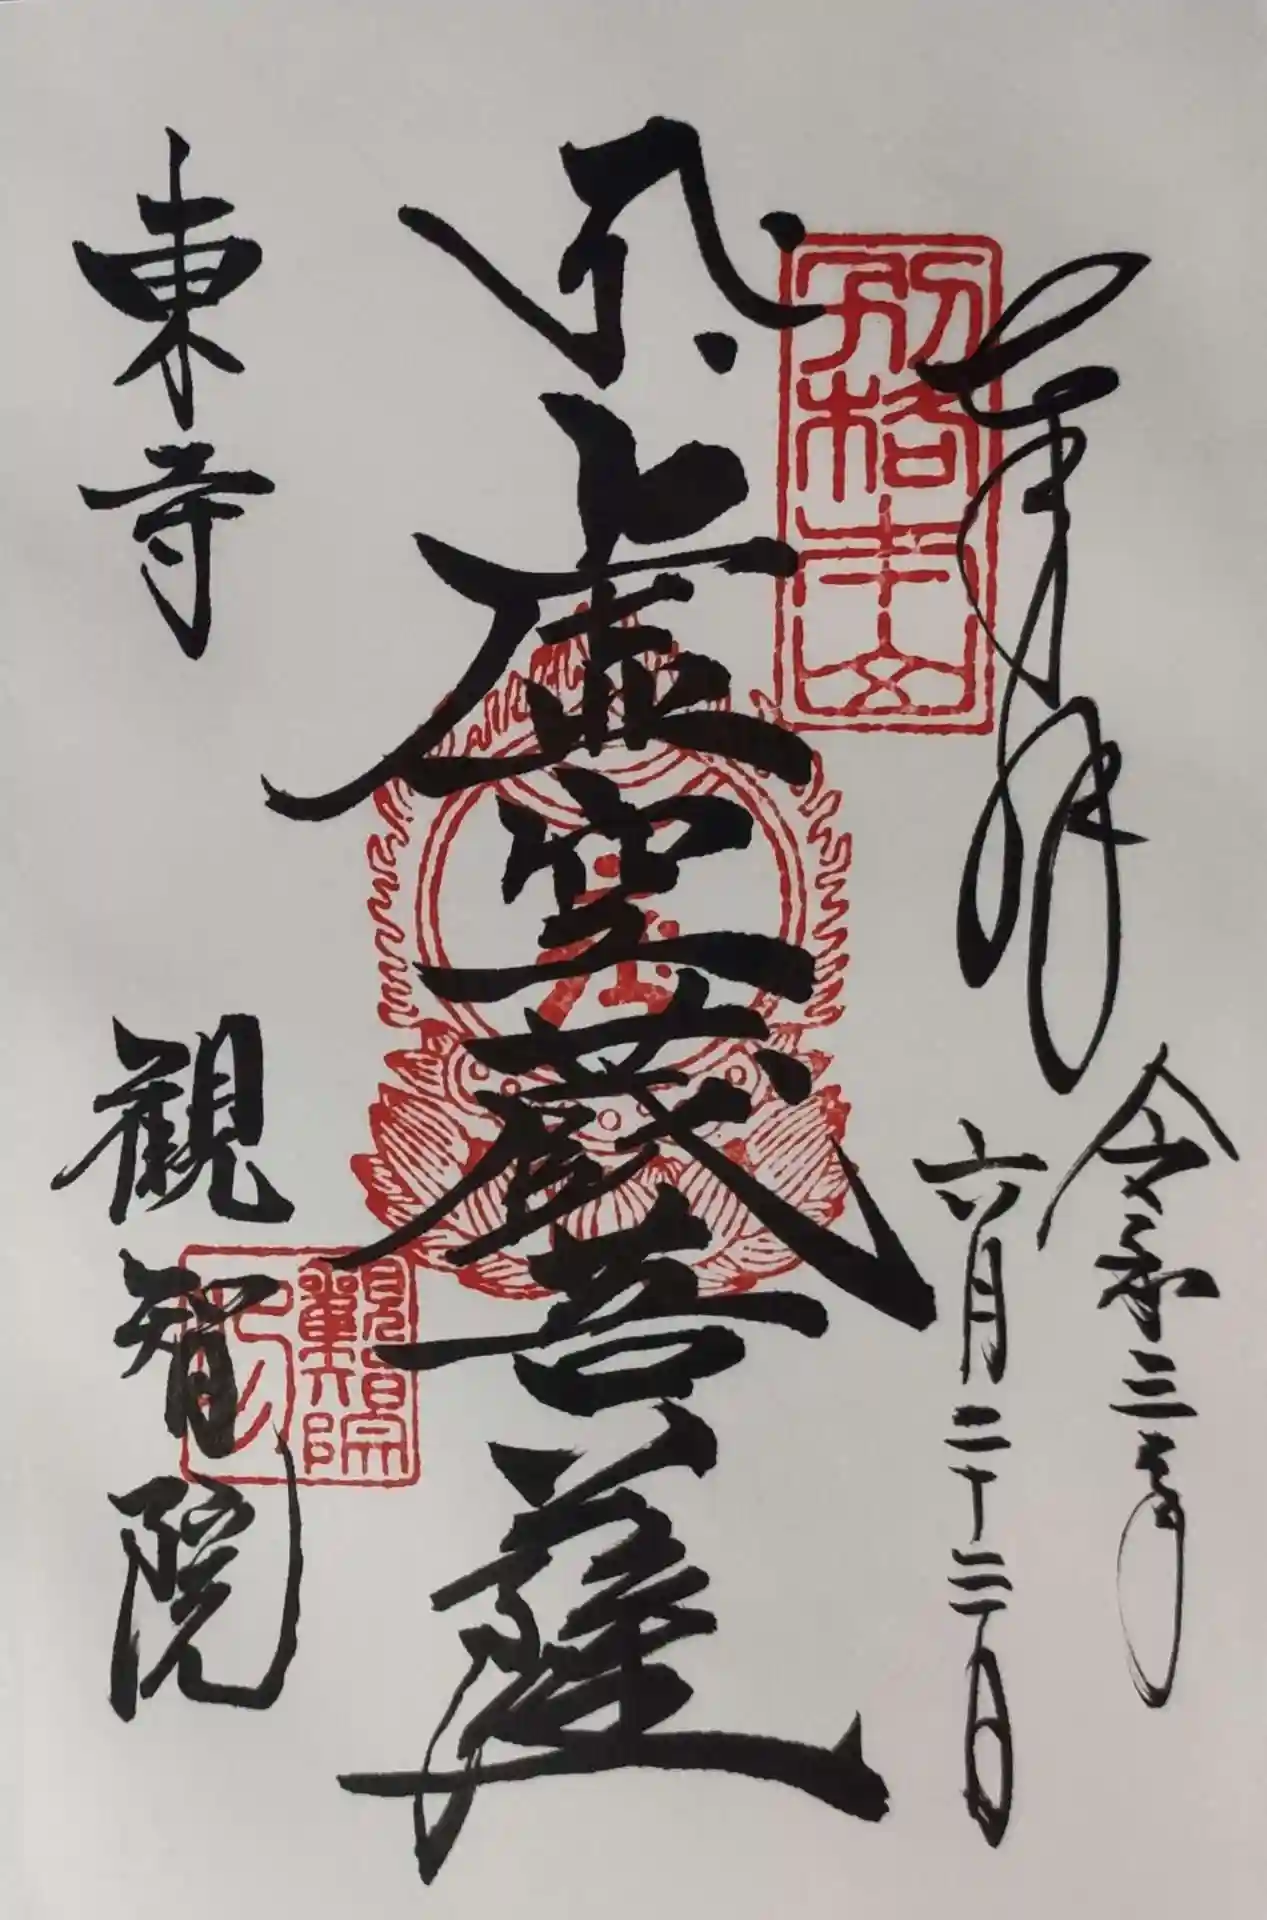 奉拝
令和三年
六月二十二日
別格本山
虚空蔵菩薩
東寺
観智院
観智院印